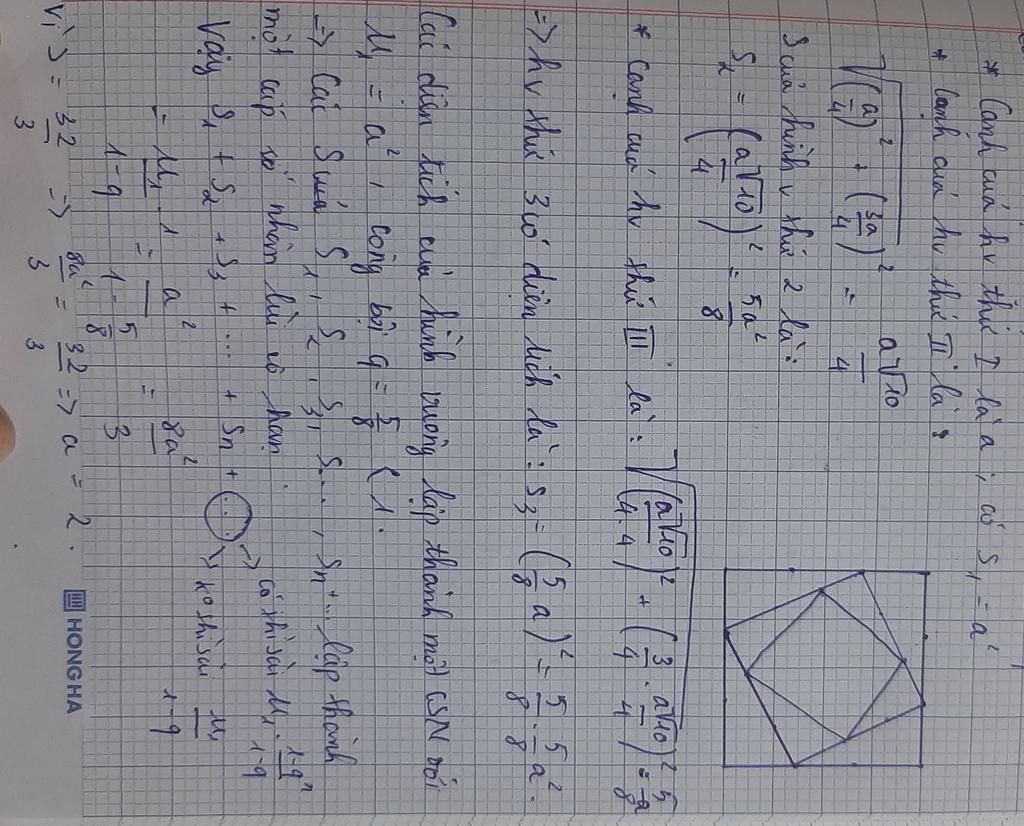 * Cạnh của hv thứ I là a ; có S₁ = a²
* Cạnh của hv thứ II là :
√((a/4)² + (3a/4)²) = a√10/4
S của hình v thứ 2 là :
S₂ = (a√10/4)² = 5a²/8
* Cạnh của hv thứ III là : √((a√10/4.4)² + (3/4 . a√10/4)²) = 5/8 a
=> hv thứ 3 có diện tích là : S₃ = (5/8 a)² = 5/8 . 5/8 a² .
Các diện tích của hình vuông lập thành một CSN với
U₁ = a² , công bội q = 5/8 < 1 .
=> Các S của S₁, S₂, S₃, S...., Sn+... lập thành
một cấp số nhân lùi vô hạn .
Vậy S₁ + S₂ + S₃ + ... + Sn + ...
-> có thì sài U₁ . 1-qⁿ/1-q
-> ko thì sài U₁/1-q
= U₁ . 1/1-q = a²/1 - 5/8 = 8a²/3
Vì > = 32/3 => 8a²/3 = 32/3 => a = 2 .
HONG HA